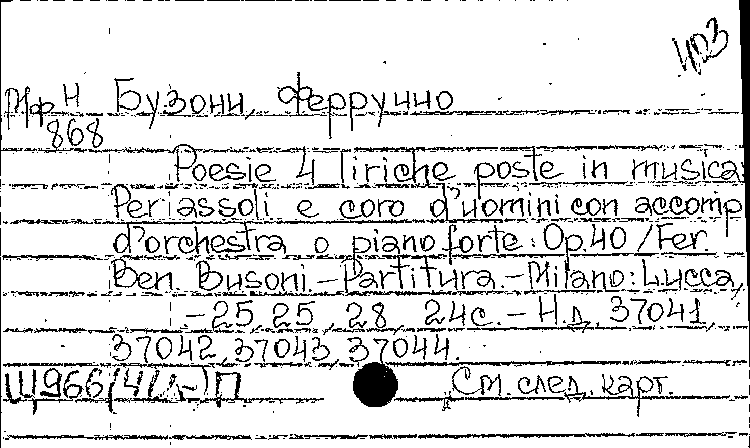 423
Мф Н Бузони, Ферруччо
868
Poesie 4 liriche poste in musica:
Per i assoli e coro d'uomini con accomp
d'orchestra o piano forte: Op.40 / Fer.
Ben. Busoni. – Partitura. – Milano: Lucca,
– 25, 25, 28, 24с. – Н.д. 37041,
37042, 37043, 37044.
Щ966(4Ит)П См. след. карт.